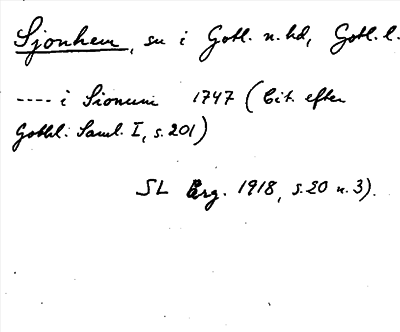 Sjonhem, sn i Gotl. n. hd, Gotl. l.
---- i Sionum 1747 (Cit. efter
Gothl. Saml. I, s. 201)
SL Erg. 1918, s. 20 n. 3).